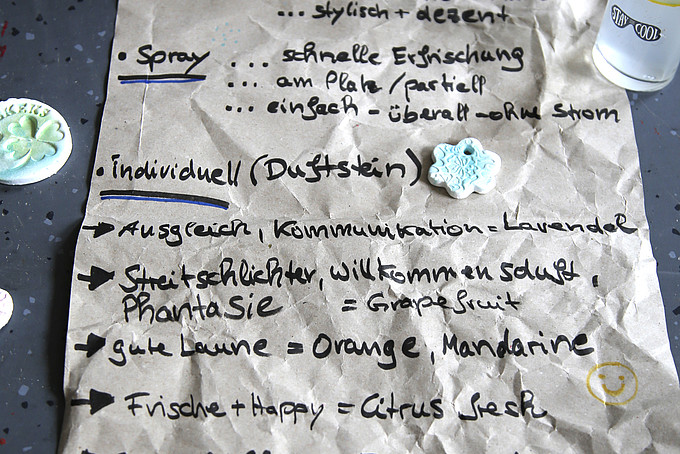 ... stylisch + dezent
STAY COOL
• Spray ... schnelle Erfrischung
... am Platz / partiell
... einfach - überall - ohne Strom
• individuell (Duftstein)
→ Ausgleich, Kommunikation = Lavendel
→ Streitschlichter, Willkommensduft,
Phantasie = Grapefruit
→ gute Laune = Orange, Mandarine
→ Frische + Happy = Citrus fresh